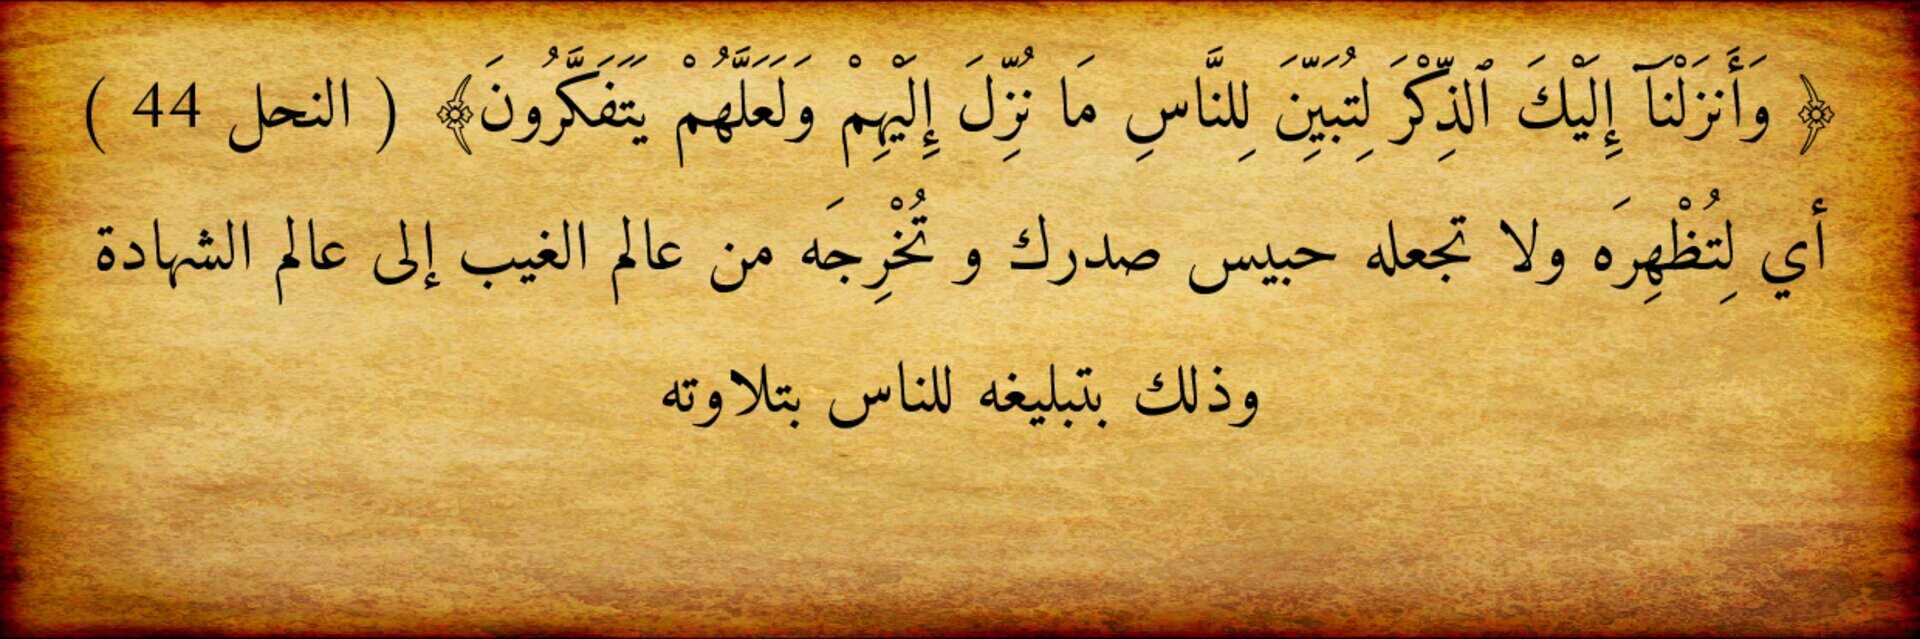 ﴿ وَأَنزَلْنَآ إِلَيْكَ ٱلذِّكْرَ لِتُبَيِّنَ لِلنَّاسِ مَا نُزِّلَ إِلَيْهِمْ وَلَعَلَّهُمْ يَتَفَكَّرُونَ﴾ ( النحل 44 )
أي لِتُظْهِرَه ولا تجعله حبيس صدرك و تُخْرِجَه من عالم الغيب إلى عالم الشهادة
وذلك بتبليغه للناس بتلاوته